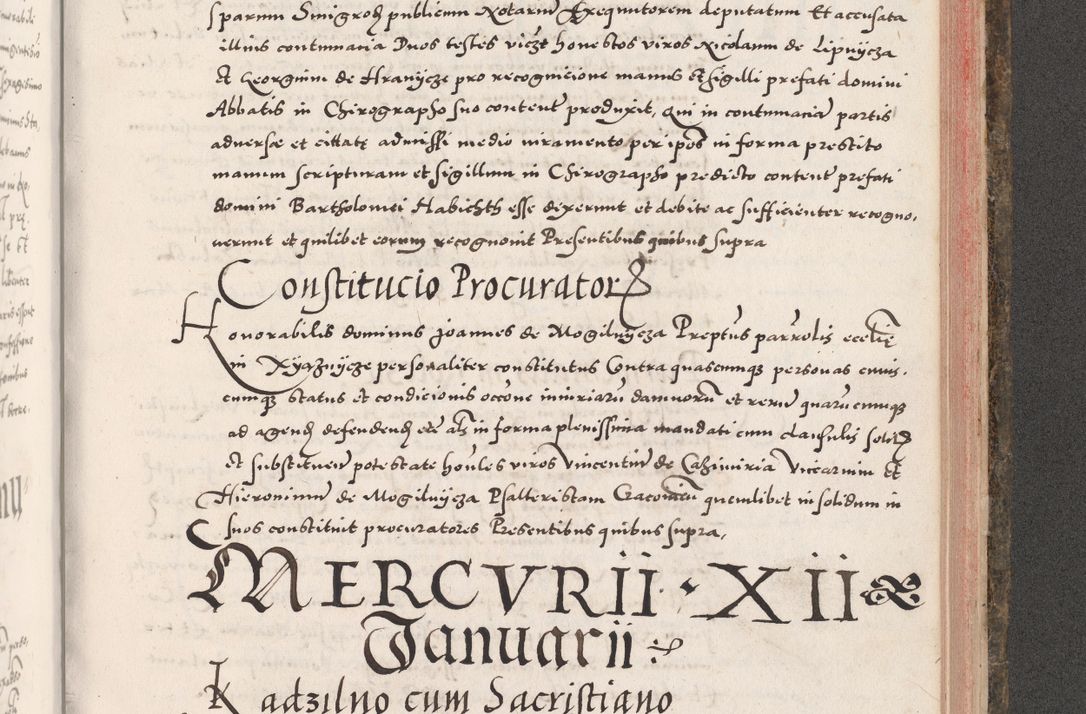 sparum Sinigrod publicum Notarium Exequutorem deputatum Et accusata
illius contumacia Duos testes viczt honestos viros Nicolaum de Lipnycza
et Georgium de Hranycze pro recognicione manus et sigilli prefati domini
Abbatis in Chirographo suo content produxit, Qui in contumacia partis
adverse et cittate admissi medio iuramento per ipos in forma prestito
manum scripturam et sigillum in Chirographo predicto content prefati
domini Bartholomei Habichth esse dixerunt et debite ac sufficienter recogno,
verunt et quilibet eorum recognovit Presentibus quibus supra
Constitucio Procurator
Honorabilis dominus Joannes de Mogilnycza Preptus parrolis ecclie
in Xyaznycze personaliter constitutus Contra quascumque personas cuius,
cumque status et condicionis occone iniuriaru damnoru et reru quarucumque
ad agend defendend etc als in forma plenissima mandati cum clausulis solit
et substituen potestate honles viros Vincentiu de Cazimiria Vicarium Et
Hieronimu de Mogilnycza Psalteristam Cracovien quemlibet in solidum in
Suos constituit procuratores Presentibus quibus supra,
MERCVRII · XII
Januarii
Kadzilno cum Sacristiano